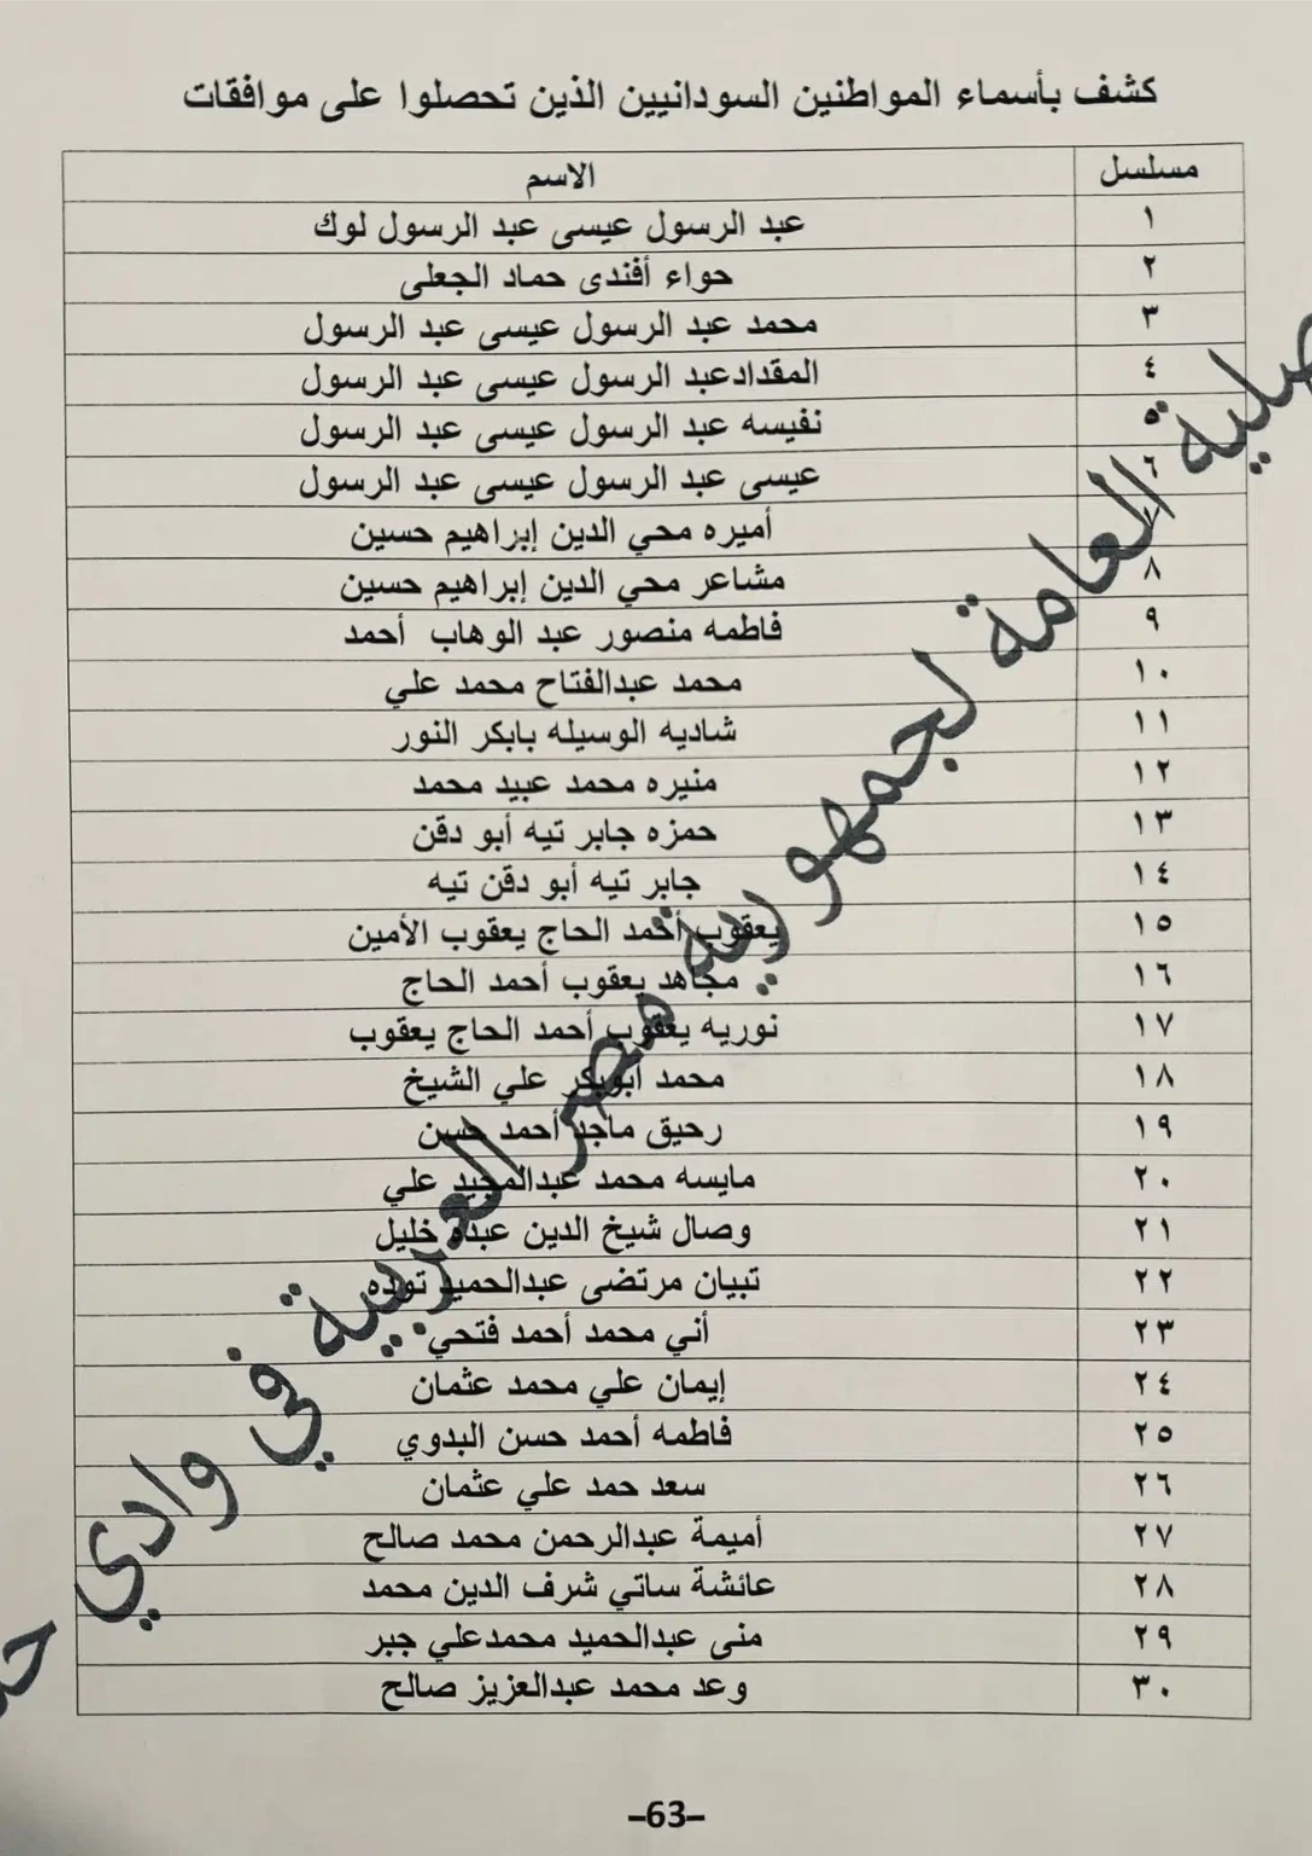 كشف بأسماء المواطنين السودانيين الذين تحصلوا على موافقات
مسلسل الاسم
١ عبد الرسول عيسى عبد الرسول لوك
٢ حواء أفندى حماد الجعلى
٣ محمد عبد الرسول عيسى عبد الرسول
٤ المقدادعبد الرسول عيسى عبد الرسول
٥ نفيسه عبد الرسول عيسى عبد الرسول
٦ عيسى عبد الرسول عيسى عبد الرسول
٧ أميره محي الدين إبراهيم حسين
٨ مشاعر محي الدين إبراهيم حسين
٩ فاطمه منصور عبد الوهاب أحمد
١٠ محمد عبدالفتاح محمد علي
١١ شاديه الوسيله بابكر النور
١٢ منيره محمد عبيد محمد
١٣ حمزه جابر تيه أبو دقن
١٤ جابر تيه أبو دقن تيه
١٥ يعقوب أحمد الحاج يعقوب الأمين
١٦ مجاهد يعقوب أحمد الحاج
١٧ نوريه يعقوب أحمد الحاج يعقوب
١٨ محمد أبوبكر علي الشيخ
١٩ رحيق ماجد أحمد حسن
٢٠ مايسه محمد عبدالمجيد علي
٢١ وصال شيخ الدين عبده خليل
٢٢ تبيان مرتضى عبدالحميد توده
٢٣ أني محمد أحمد فتحي
٢٤ إيمان علي محمد عثمان
٢٥ فاطمه أحمد حسن البدوي
٢٦ سعد حمد علي عثمان
٢٧ أميمة عبدالرحمن محمد صالح
٢٨ عائشة ساتي شرف الدين محمد
٢٩ منى عبدالحميد محمدعلي جبر
٣٠ وعد محمد عبدالعزيز صالح
العامة لجمهورية مصر العربية في وادي
–63–